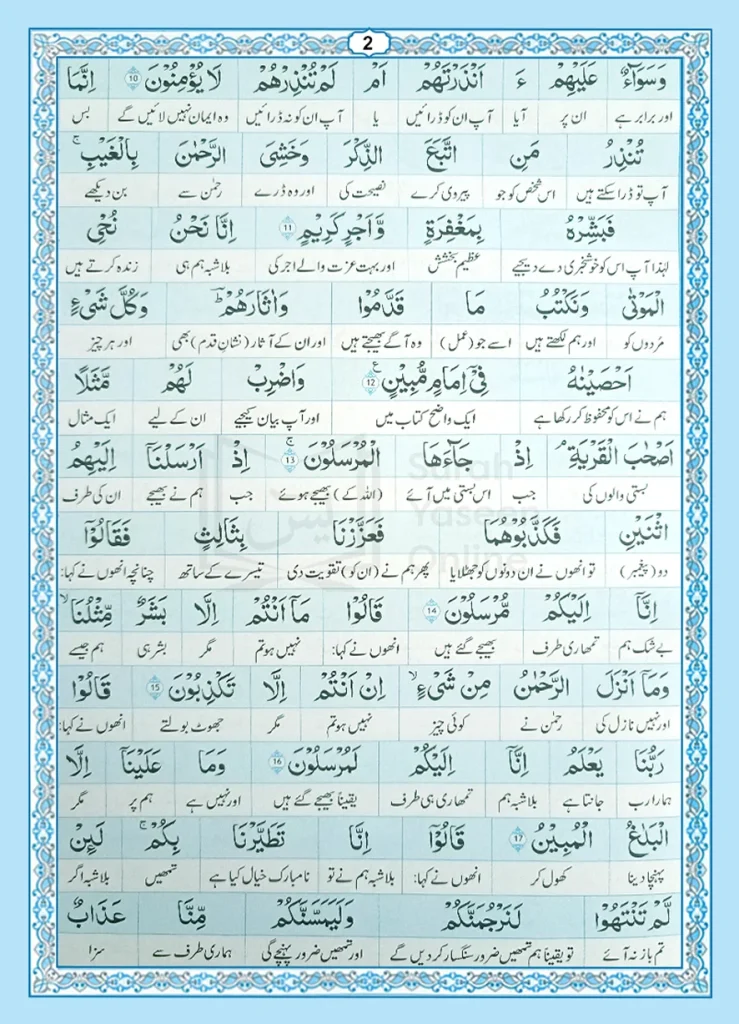 2
وَسَوَآءٌ عَلَيْهِمْ ءَ اَنْذَرْتَهُمْ اَمْ لَمْ تُنْذِرْهُمْ لَا يُؤْمِنُوْنَ ⑩ اِنَّمَا
اور برابر ہے ان پر آیا آپ ان کو ڈرائیں یا آپ ان کو نہ ڈرائیں وہ ایمان نہیں لائیں گے بس
تُنْذِرُ مَنِ اتَّبَعَ الذِّكْرَ وَخَشِىَ الرَّحْمٰنَ بِالْغَيْبِ ۚ
آپ تو ڈرا سکتے ہیں اس شخص کو جو پیروی کرے نصیحت کی اور وہ ڈرے رحمٰن سے بن دیکھے
فَبَشِّرْهُ بِمَغْفِرَةٍ وَّاَجْرٍ كَرِيْمٍ ⑪ اِنَّا نَحْنُ نُحْىِ
لہٰذا آپ اس کو خوشخبری دے دیجیے عظیم بخشش اور بہت عزت والے اجر کی بلاشبہ ہم ہی زندہ کرتے ہیں
الْمَوْتٰى وَنَكْتُبُ مَا قَدَّمُوْا وَاٰثَارَهُمْ ؕ وَكُلَّ شَىْءٍ
مُردوں کو اور ہم لکھتے ہیں اسے جو (عمل) وہ آگے بھیجتے ہیں اور ان کے آثار (نشانِ قدم) بھی اور ہر چیز
اَحْصَيْنٰهُ فِىْٓ اِمَامٍ مُّبِيْنٍ ⑫ وَاضْرِبْ لَهُمْ مَّثَلًا
ہم نے اس کو محفوظ کر رکھا ہے ایک واضح کتاب میں اور آپ بیان کیجیے ان کے لیے ایک مثال
اَصْحٰبَ الْقَرْيَةِ ۘ اِذْ جَآءَهَا الْمُرْسَلُوْنَ ⑬ ۚ اِذْ اَرْسَلْنَآ اِلَيْهِمُ
بستی والوں کی جب اس بستی میں آئے (اللہ کے) بھیجے ہوئے جب ہم نے بھیجے ان کی طرف
اثْنَيْنِ فَكَذَّبُوْهُمَا فَعَزَّزْنَا بِثَالِثٍ فَقَالُوْٓا
دو (پیغمبر) تو انھوں نے ان دونوں کو جھٹلایا پھر ہم نے (ان کو) تقویت دی تیسرے کے ساتھ چنانچہ انھوں نے کہا:
اِنَّآ اِلَيْكُمْ مُّرْسَلُوْنَ ⑭ قَالُوْا مَآ اَنْتُمْ اِلَّا بَشَرٌ مِّثْلُنَا ۙ
بے شک ہم تمھاری طرف بھیجے گئے ہیں انھوں نے کہا: نہیں ہو تم مگر بشر ہی ہم جیسے
وَمَآ اَنْزَلَ الرَّحْمٰنُ مِنْ شَىْءٍ ۙ اِنْ اَنْتُمْ اِلَّا تَكْذِبُوْنَ ⑮ قَالُوْا
اور نہیں نازل کی رحمٰن نے کوئی چیز نہیں ہو تم مگر جھوٹ بولتے انھوں نے کہا:
رَبُّنَا يَعْلَمُ اِنَّآ اِلَيْكُمْ لَمُرْسَلُوْنَ ⑯ وَمَا عَلَيْنَآ اِلَّا
ہمارا رب جانتا ہے بلاشبہ ہم تمھاری ہی طرف یقیناً بھیجے گئے ہیں اور نہیں ہے ہم پر مگر
الْبَلٰغُ الْمُبِيْنُ ⑰ قَالُوْٓا اِنَّا تَطَيَّرْنَا بِكُمْ ۚ لَئِنْ
پہنچا دینا کھول کر انھوں نے کہا: بلاشبہ ہم نے تو نامبارک خیال کیا ہے تمھیں بلاشبہ اگر
لَّمْ تَنْتَهُوْا لَنَرْجُمَنَّكُمْ وَلَيَمَسَّنَّكُمْ مِّنَّا عَذَابٌ
تم باز نہ آئے تو یقیناً ہم تمھیں ضرور سنگسار کر دیں گے اور تمھیں ضرور پہنچے گی ہماری طرف سے سزا
يٰسٓ
Surah
Yaseen
Online